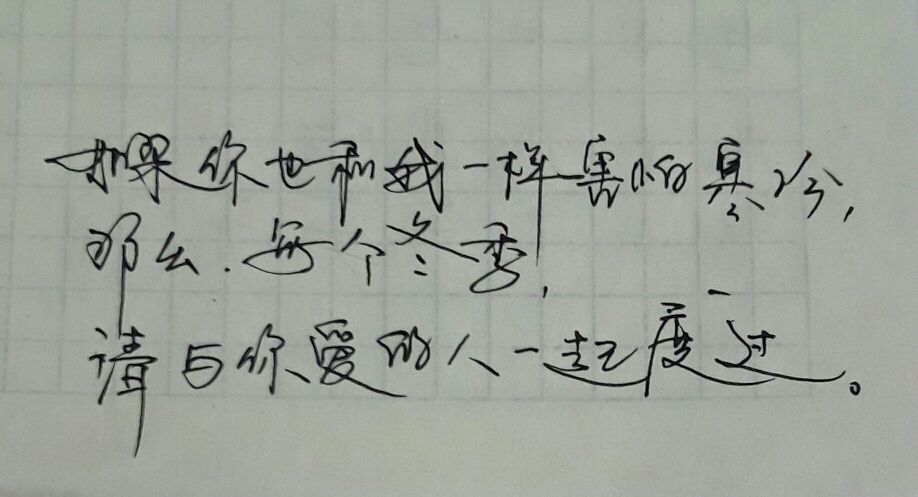 如果你也和我一样害怕寒冷,
那么.每个冬季,
请与你爱的人一起度过。